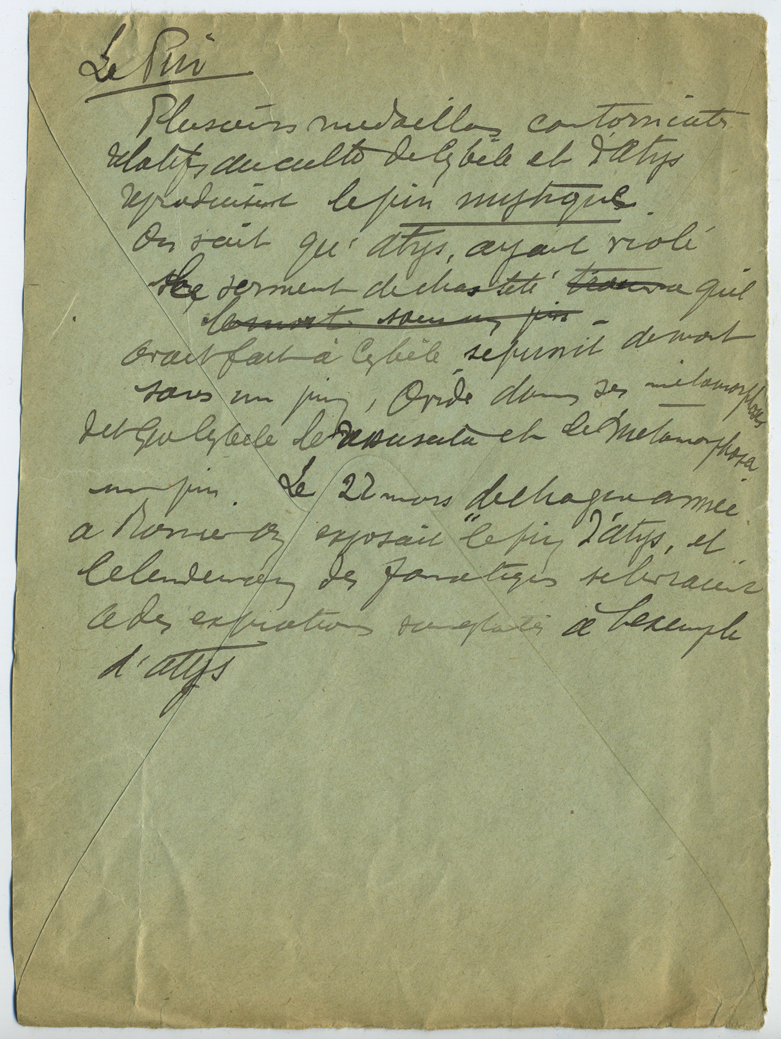 Le Pin
Plusieurs medailles contorniats
relatifs au culte de Cybèle et d'Atys
reproduisent le pin mystique.
On sait qu'Atys, ayant violé
le serment de chasteté trouva qu'il
la mort sous un pin
avait fait à Cybèle se punit de mort
sous un pin, Ovide dans ses métamorphoses
dit que Cybèle le ressuscita et le métamorphosa
un pin. Le 22 mars de chaque année
a Rome on exposait "le pin d'Atys, et
le lendemain des fanatiques se livraient
a des expiations sanglantes à l'exemple
d'Atys